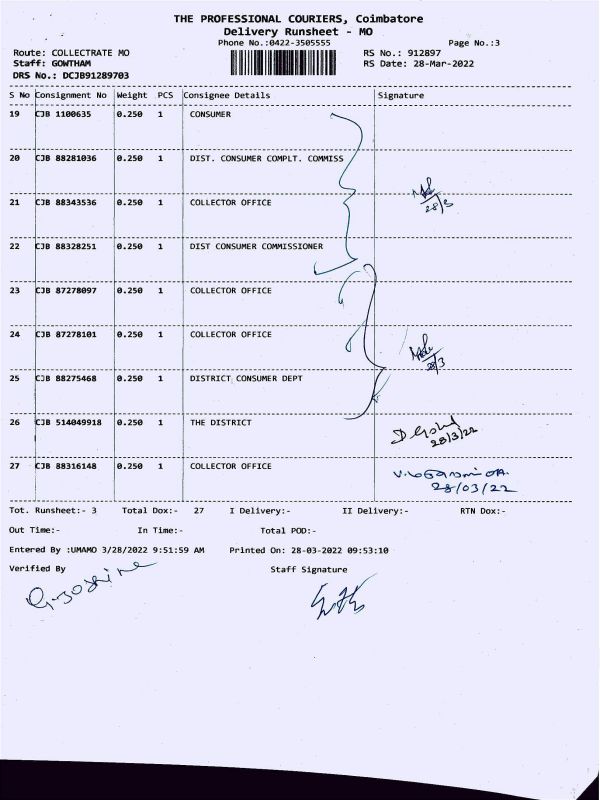 THE PROFESSIONAL COURIERS, Coimbatore
Delivery Runsheet - MO
Phone No.:0422-3505555 Page No.:3
Route: COLLECTRATE MO RS No.: 912897
Staff: GOWTHAM RS Date: 28-Mar-2022
DRS No.: DCJB91289703
S No Consignment No Weight PCS Consignee Details Signature
19 CJB 1100635 0.250 1 CONSUMER
20 CJB 88281036 0.250 1 DIST. CONSUMER COMPLT. COMMISS
21 CJB 88343536 0.250 1 COLLECTOR OFFICE 28/3
22 CJB 88328251 0.250 1 DIST CONSUMER COMMISSIONER
23 CJB 87278097 0.250 1 COLLECTOR OFFICE
24 CJB 87278101 0.250 1 COLLECTOR OFFICE 28/3
25 CJB 88275468 0.250 1 DISTRICT CONSUMER DEPT
26 CJB 514049918 0.250 1 THE DISTRICT 28/3/22
27 CJB 88316148 0.250 1 COLLECTOR OFFICE 28/03/22
Tot. Runsheet:- 3 Total Dox:- 27 I Delivery:- II Delivery:- RTN Dox:-
Out Time:- In Time:- Total POD:-
Entered By :UMAMO 3/28/2022 9:51:59 AM Printed On: 28-03-2022 09:53:10
Verified By Staff Signature